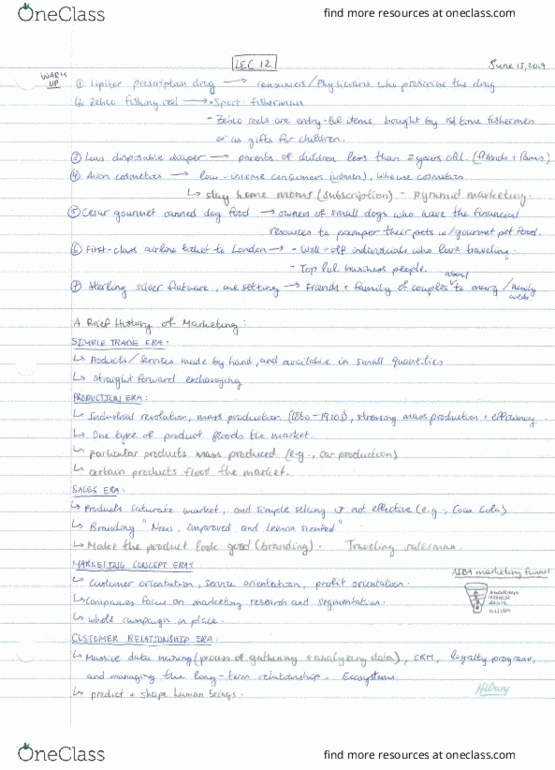 OneClass
find more resources at oneclass.com
LEC 12
June 13, 2019
WARM UP
① Lipitor prescription drug → consumers/Physicians who prescribe the drug
② Zebco fishing reel → • Sport fishermen
- Zebco reels are entry-lvl items, bought by 1st time fishermen
or as gifts for children.
③ Luvs disposable diaper → parents of children less than 2 years old. (friends + fams)
④ Avon cosmetics → low-income consumers (women), who use cosmetics
↳ stay home moms (subscription) - pyramid marketing.
⑤ Cesar gourmet canned dog food → owners of small dogs who have the financial
resources to pamper their pets w/gourmet pet food.
⑥ First-class airline ticket to London → - Well-off individuals who love traveling.
- Top lvl business people.
⑦ Sterling silver flatware, one setting → Friends + family of couples about to marry/newly weds
A Brief History of Marketing:
SIMPLE TRADE ERA:
↳ Products/Services made by hand, and available in small quantities
↳ straight forward exchanging
PRODUCTION ERA:
↳ Industrial revolution, mass production (1860-1910s), stressing mass production + efficiency
↳ One type of product floods the market.
↳ particular products mass produced (e.g., car production)
↳ certain products flood the market.
SALES ERA:
↳ Products saturate market, and simple selling is not effective (e.g., Coca Cola)
↳ Branding "New, improved and Lemon scented"
↳ Make the product look good (branding). Traveling salesman.
MARKETING CONCEPT ERA:
AIDA marketing funnel
↳ Customer orientation, service orientation, profit orientation.
AWARENESS
INTEREST
DESIRE
ACTION
↳ Companies focus on marketing research and segmentation.
↳ whole campaign in place.
CUSTOMER RELATIONSHIP ERA:
↳ Massive data mining (process of gathering + analyzing data), CRM, loyalty programs,
and managing the long-term relationship. Ecosystems
↳ product + shape human beings.
Hilroy
OneClass
find more resources at oneclass.com